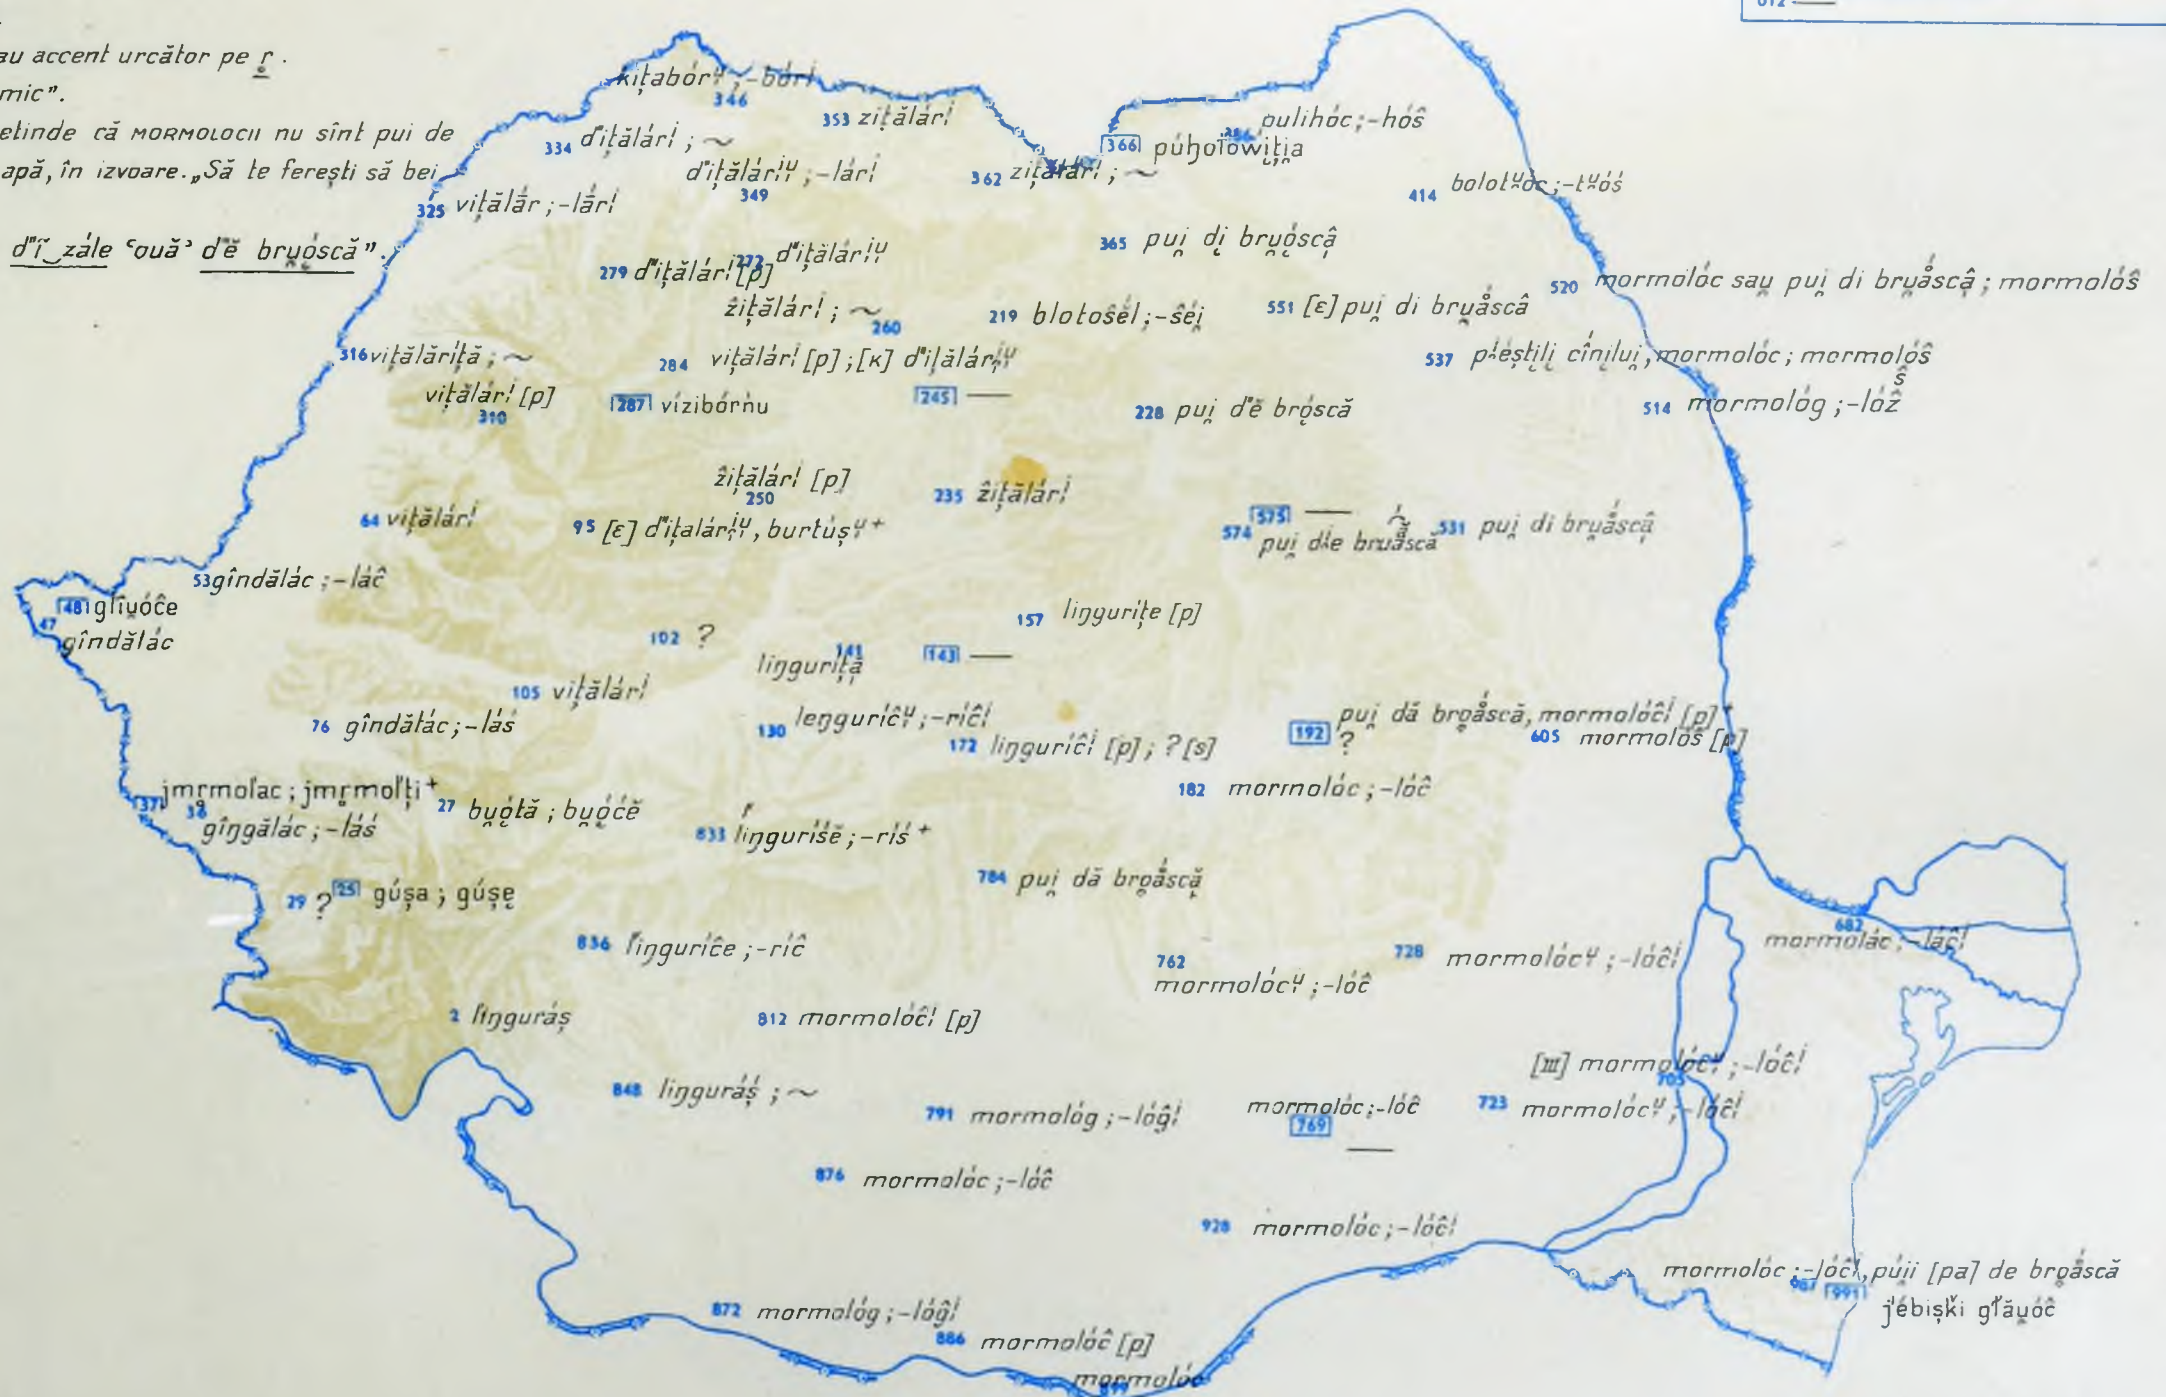 012 —
au accent urcător pe r̥ .
mic”.
etinde că MORMOLOCII nu sînt pui de
apă, în izvoare. „Să te ferești să bei
d'ĭ‿zále ‘ouă’ d'ĕ bru̯óscă”.
346 kițabórʸ ; -bórĭ
353 zițălárĭ
334 d'ițălárĭ ; ~
349 d'ițălárĭʸ ; -lárĭ
362 zițălárĭ ; ~
366 púhołowiția
pulihóc ; -hóŝ
325 vițălár ; -lárĭ
414 bolotʸóc ; -tʸóś
365 pui̯ di bru̯óscâ
272 d'ițălárĭʸ
279 d'ițălárĭ [p]
260 ẑițălárĭ ; ~
219 blotoŝél ; -ŝéi̯
551 [ε] pui̯ di bru̯åscâ
520 mormolóc sau pui̯ di bru̯åscâ ; mormolóŝ
316 vițălăríță ; ~
284 vițălárĭ [p] ; [κ] d'ițălárĭʸ
537 pléștili̯ cî́nilui̯, mormolóc ; mormolóŝ
310 vițălárĭ [p]
287 vízibórńu
245 —
228 pui̯ d'ĕ bro̯scă
514 mormológ ; -lóẑ
ŝ
250 ẑițălárĭ [p]
235 ẑițălárĭ
64 vițălárĭ
95 [ε] d'ițalárĭʸ, burtúșʸ +
575 —
574 pui̯ dĭe bru̯åscă
531 pui̯ di bru̯åscâ
53 gîndălác ; -láĉ
48 glĭu̯óĉe
47 gîndălác
157 liŋgurițe [p]
102 ?
141 liŋguríță
143 —
105 vițălárĭ
76 gîndălác ; -láś
130 leŋguríĉʸ ; -ríĉĭ
172 liŋguríĉĭ [p] ; ? [s]
192 ?
pui̯ dă bro̯åscă, mormolóĉĭ [p] +
605 mormolóŝ [p]
182 mormolóc ; -lóĉ
37 jmr̥molac ; jmr̥molți +
36 gîŋgălác ; -láś
27 bu̯ótă ; bu̯óćĕ
833 liŋguríśĕ ; -ríś +
784 pui̯ dă bro̯åscă
29 ?
25 gúșa ; gúșe̯
836 l'iŋguríĉe ; -ríĉ
762 mormolócʸ ; -lóĉ
728 mormolócʸ ; -lóĉĭ
682 mormolác ; -láĉĭ
2 l'iŋguráș
812 mormolóĉĭ [p]
705 [III] mormolócʸ ; -lóĉĭ
848 liŋguráș́ ; ~
791 mormológ ; -lóĝĭ
mormolóc ; -lóĉ
769 —
723 mormolócʸ ; -lóĉĭ
876 mormolóc ; -lóĉ
928 mormolóc ; -lóĉĭ
mormolóc ; -lóĉĭ, púii [pa] de bro̯åscă
991 jébișḱi głău̯óĉ
872 mormológ ; -lóĝĭ
886 mormolóĉ [p]
mormolóc